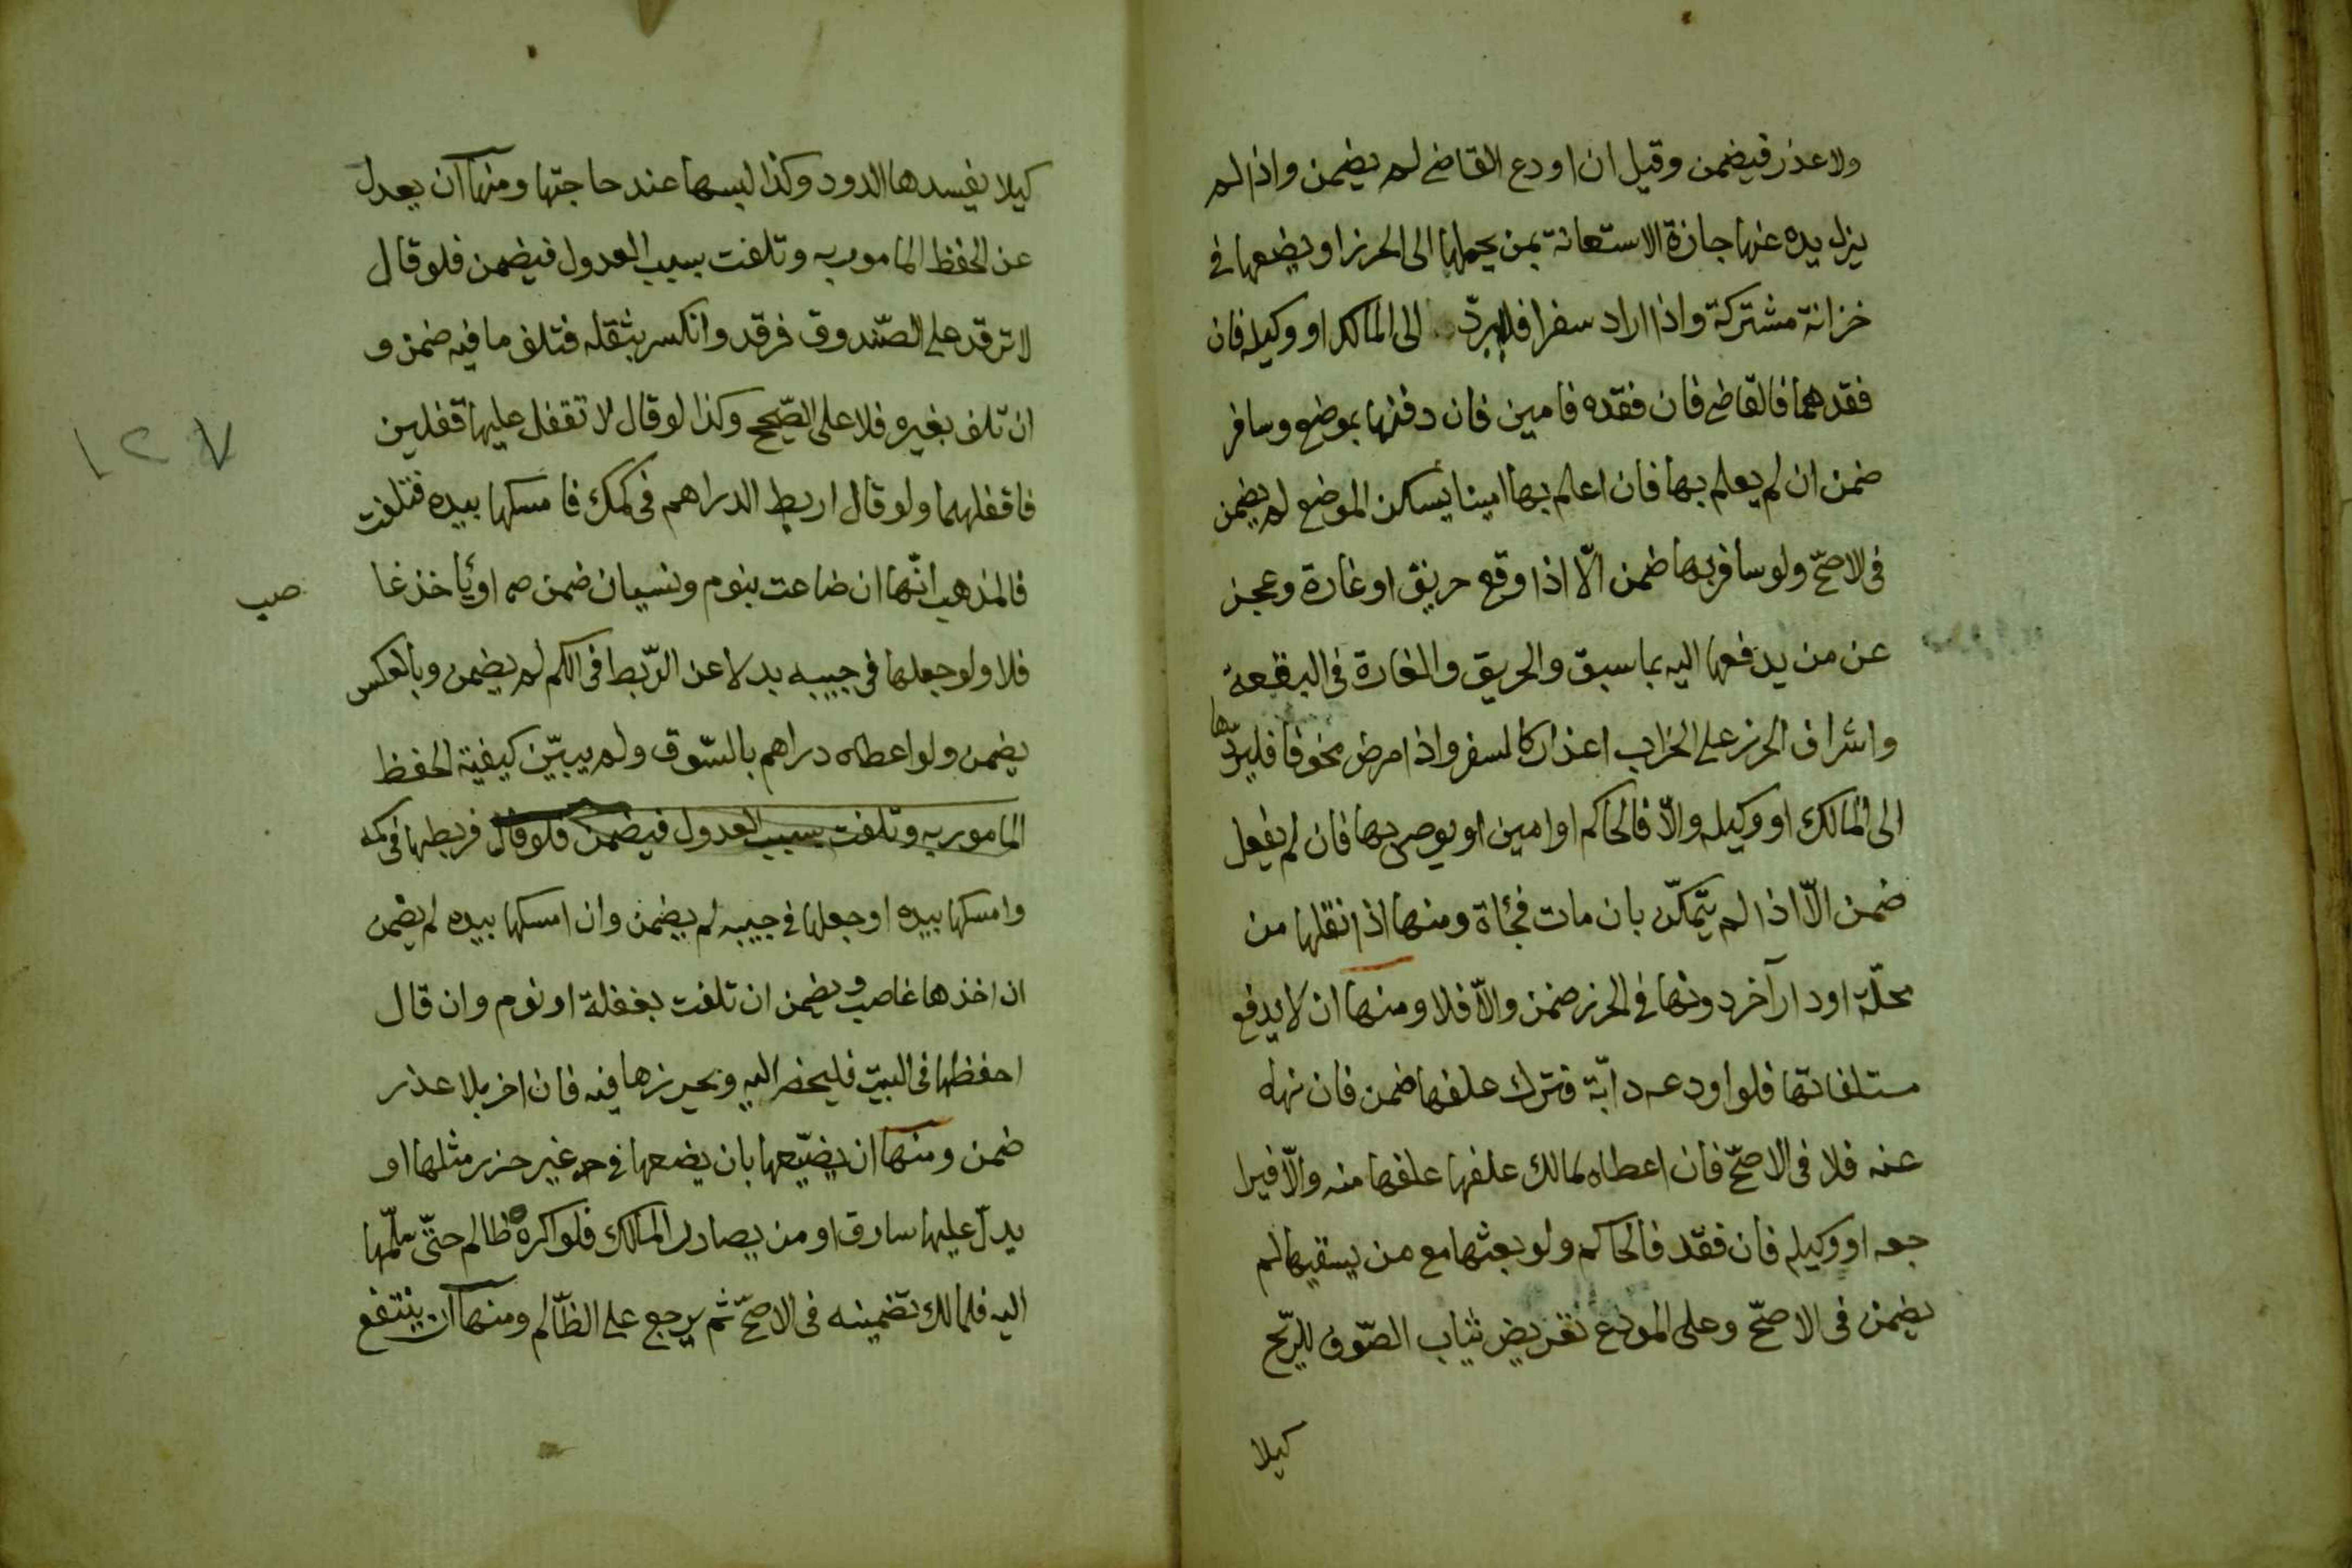 ولا عذر فيضمن وقيل ان اودع القاضي لم يضمن واذا لم
يزل يده عنها جازة الاستعانة بمن يحملها الى الحرز او يضعها في
خزانة مشتركة واذا اراد سفرا فليردّ الى المالك او وكيله فان
فقدهما فالقاضي فان فقده فامين فان دفنها بموضع وسافر
ضمن ان لم يعلم بها فان اعلم بها امينا يسكن الموضع لم يضمن
في الاصحّ ولو سافر بها ضمن الّا اذا وقع حريق او غارة وعجز
عن من يدفعها اليه بما سبق والحريق والغارة في البقعة
واشراف الحرز على الخراب اعذار كالسفر واذا مرض مخوفا فليردّها
الى المالك او وكيله والّا فالحاكم او امين او يوصي بها فان لم يفعل
ضمن الّا اذا لم يتمكّن بان مات فجأة ومنها اذا نقلها من
محلّة او دار آخر دونها في الحرز ضمن والّا فلا ومنها ان لا يدفع
متلفاتها فلو اودعه دابّة فترك علفها ضمن فان نهاه
عنه فلا في الاصحّ فان اعطاه لمالك علفها علفها منه والّا فيرا
جعه او وكيله فان فقد فالحاكم ولو بعثها مع من يسقيها لم
يضمن في الاصحّ وعلى المودع تعريض ثياب الصّوف للرّيح
كيلا
كيلا يفسدها الدود وكذا لبسها عند حاجتها ومنها ان يعدل
عن الحفظ المامور به وتلفت بسبب العدول فيضمن فلو قال
لا ترقد على الصّندوق فرقد وانكسر بثقله فتلف ما فيه ضمن و
ان تلف بغيره فلا على الصّحيح وكذا لو قال لا تقفل عليها قفلين
فاقفلهما ولو قال اربط الدراهم في كمك فامسكها بيده فتلفت
١٢٧
فالمذهب انّها ان ضاعت بنوم ونسيان ضمن او ياخذ غا
صب
فلا ولو جعلها في جيبه بدلا عن الرّبط في الكم لم يضمن وبالعكس
يضمن ولو اعطاه دراهم بالسّوق ولم يبيّن كيفية الحفظ
المامور به وتلفت بسبب العدول فيضمن فلو قال فربطها في كمه
وامسكها بيده او جعلها في جيبه لم يضمن وان امسكها بيده لم يضمن
ان اخذها غاصب ويضمن ان تلفت بغفلة او نوم وان قال
احفظها في البيت فليحضر اليه ويحرزها فيه فان اخر بلا عذر
ضمن ومنها ان يضيّعها بان يضعها في غير حرز مثلها او
يدلّ عليها سارق او من يصادر المالك فلو اكره ظالم حتّى سلّمها
اليه فلمالك تضمينه في الاصحّ ثم يرجع على الظّالم ومنها ان ينتفع